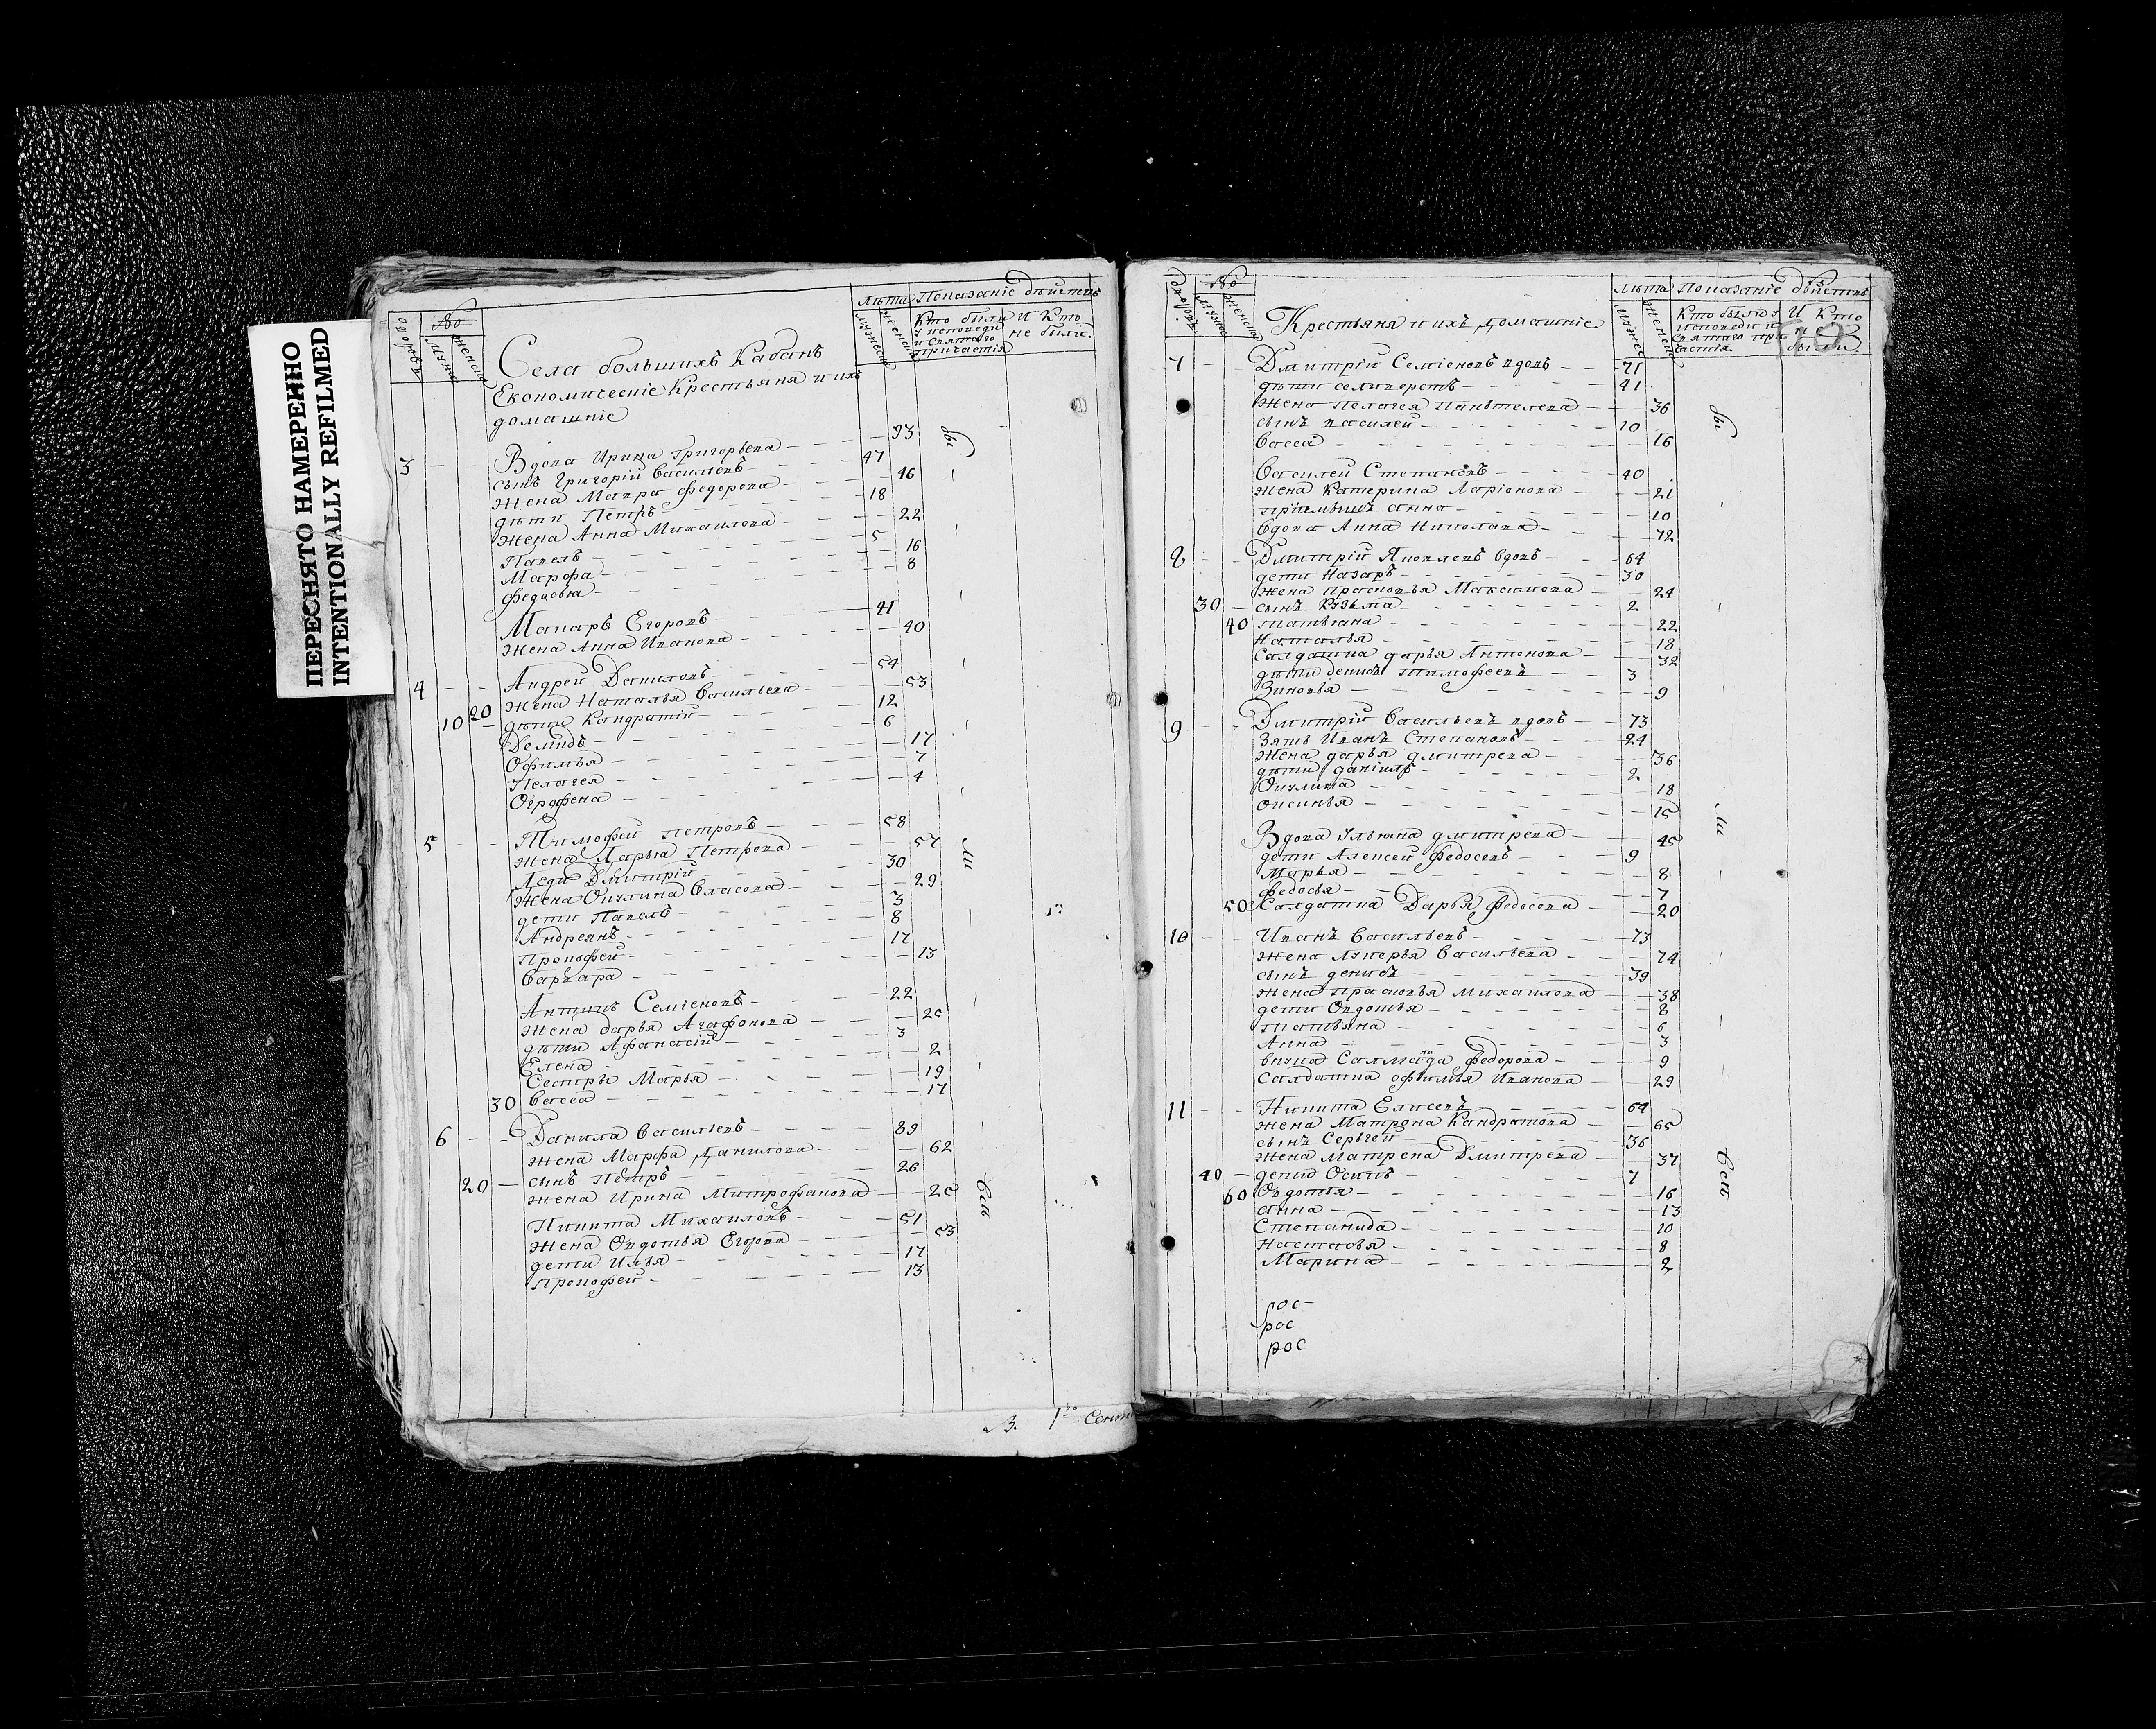 ПЕРЕСНЯТО НАМЕРЕННО
INTENTIONALLY REFILMED
№ Лѣта Показаніе дѣйствъ
Кто были у исповеди и Святаго причастія И Кто не были
Села большихъ Кабанъ
Економическіе Крестьяня и ихъ
домашніе
3 Вдова Ирина Григорьева 93
сынъ Григорій Васильевъ 47
жена Мавра Федорова 46
дѣти Петръ 18
жена Анна Михаилова 22
Павелъ 5
Марфа 16
Федосья 8
Макаръ Егоровъ 41
жена Анна Иванова 40
4 Андрей Даниловъ 54
жена Наталья Васильева 53
10 20 дѣти Кандратій 12
Демидъ 6
Офимья 17
Пелагея 7
Огрофена 4
5 Тимофей Петровъ 58
жена Дарья Петрова 57
Дмитрій 30
жена Окулина Власова 29
дети Павелъ 3
Андреянъ 8
Прокофей 17
Варвара 13
Антипъ Семіоновъ 22
жена дарья Агафонова 25
дѣти Афанасій 3
Елена 2
Сестры Марья 19
30 Васса 17
6 Данила Васильевъ 89
жена Марфа Данилова 62
20 сынъ Петръ 26
жена Ирина Митрофанова 25
Никита Михаиловъ 51
жена Овдотья Егорова 53
дети Илья 17
прокофей 13
бы
ли
Всѣ
№ Крестьяня и ихъ домашніе Лѣта Показаніе дѣйствъ
Кто были у исповеди и Святаго причастія И Кто не были
7 Дмитрій Семіоновъ вдовъ 71
дѣти селиверстъ 41
жена пелагея Пантелева 36
сынъ василей 10
Васса 16
Василей Степановъ 40
жена Катерина Ларіонова 21
пріемышъ анна 10
Вдова Анна Николава 72
8 Дмитрій Яковлевъ вдовъ 64
дети Назаръ 30
жена прасковья Максимова 24
30 сынъ Кузьма 2
40 татьяна 22
Наталья 18
Салдатка дарья Антонова 32
дѣти денисъ тимофеевъ 3
Зиновья 9
9 Дмитрій Васильевъ вдовъ 73
Зять Иванъ Степановъ 24
жена дарья дмитрева 36
дѣти данішлъ 2
Окулина 18
оксинья 15
Вдова ульяна дмитрева 45
дети Алексей Федосевъ 9
Марья 8
Федосья 7
50 Салдатка Дарья Федосева 20
10 Иванъ Васильевъ 73
жена Лукерья Васильева 74
сынъ денисъ 39
жена прасковья михаилова 38
дети Овдотья 8
татьяна 6
Анна 3
внука Саламанида Федорова 9
Салдатка офимья Иванова 29
11 Никита Елисевъ 64
жена Матрона Кандратова 65
сынъ Сергей 36
жена Матрена Дмитрева 37
40 дети Осипъ 7
60 Овдотья 16
анна 13
Степанида 10
Настасья 8
Марина 2
бы
ли
Всѣ
рос
рос
рос